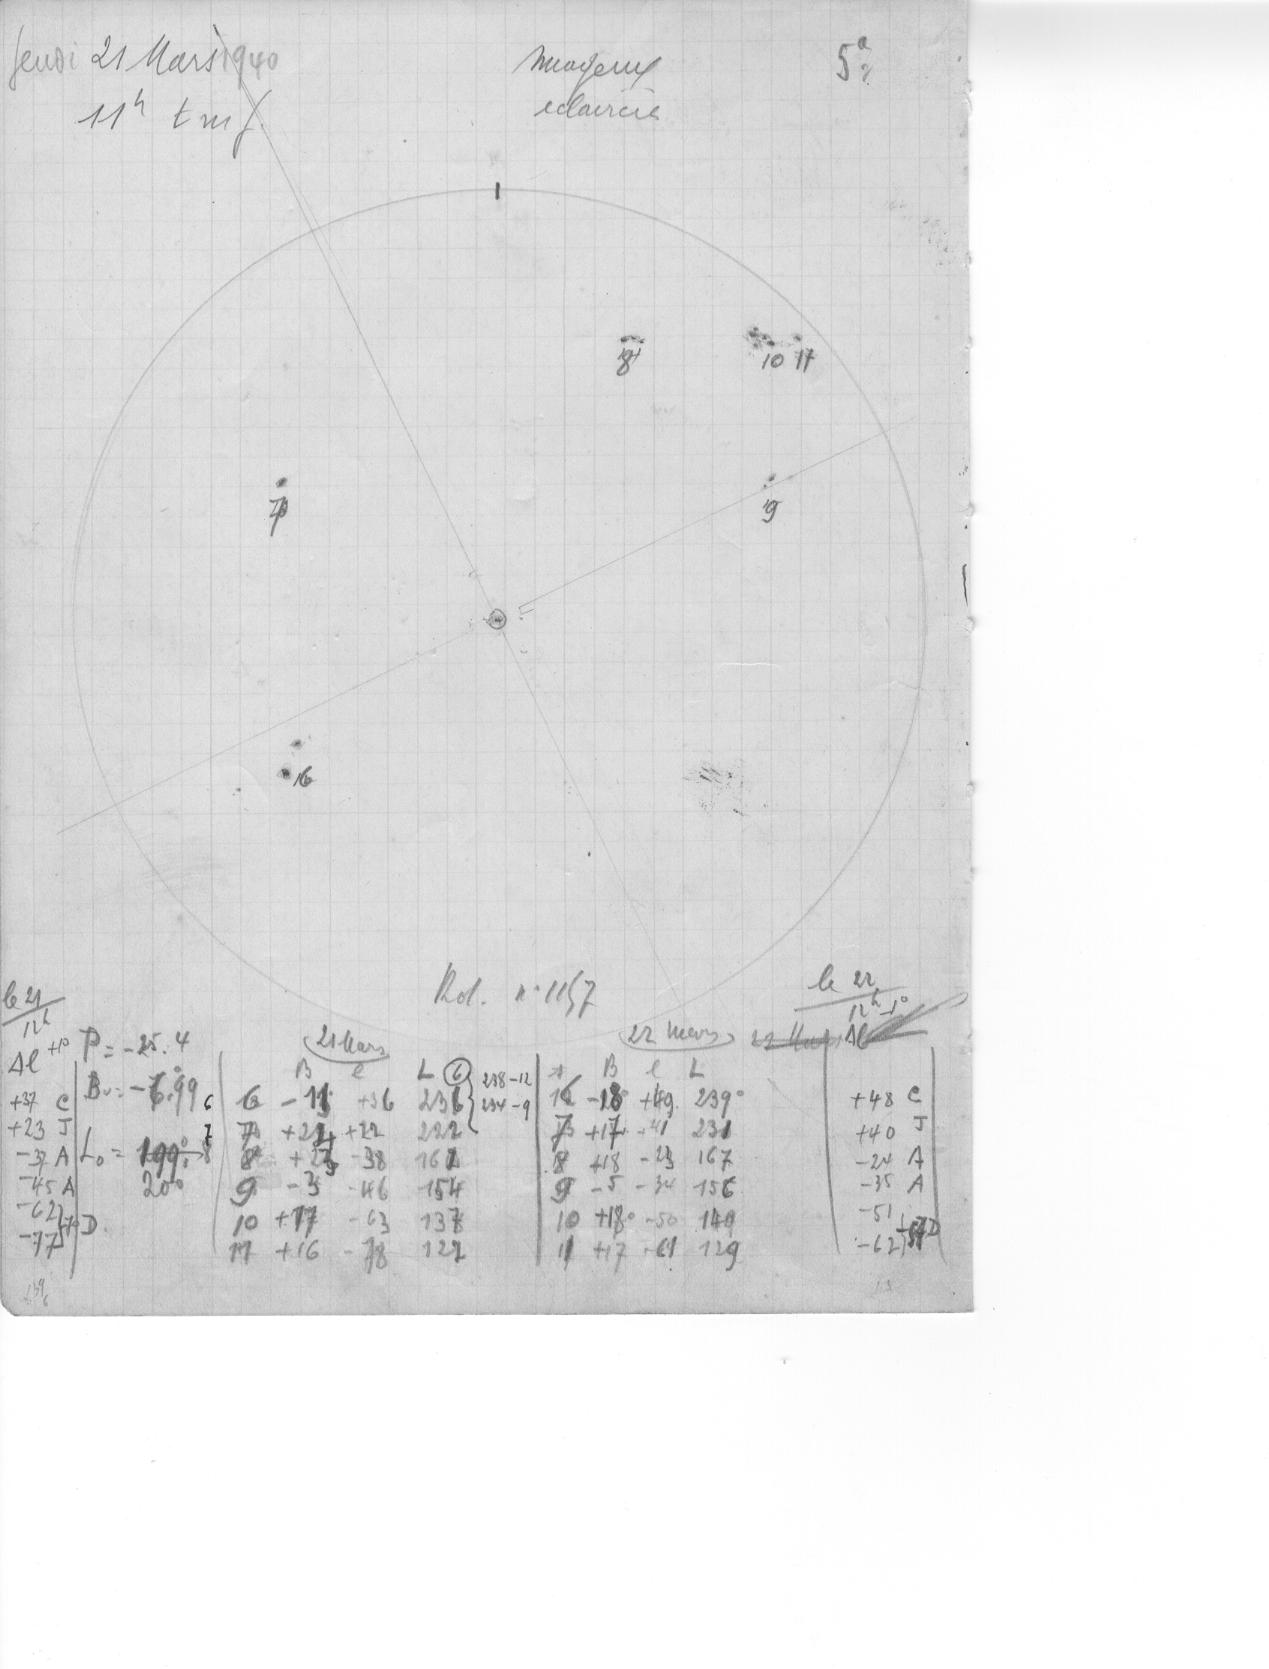 Jeudi 21 Mars 1940
11h tmg
nuageux
éclaircie
8
10 11
7
9
16
Rot. n° 1157
le 21
12h
Δl +1°
+37 C
+23 J
-37 A
-45 A
-62
-77 D
P = -25.4
B0 = -6.99
L0 =
200
21 Mars
B l L
6 +36 236
7 +22 222
8 -38 162
9 -3 -46 154
10 +17 -63 137
11 +16 -78 122
6
238-12
234-9
22 Mars
B l L
-18° +49 239°
7 +17 +41 231
8 +18 -23 167
9 -5 -34 156
10 +18° -50 140
11 +17 -61 129
le 22
12h -1°
Δl
+48 C
+40 J
-24 A
-35 A
-51
-62 D